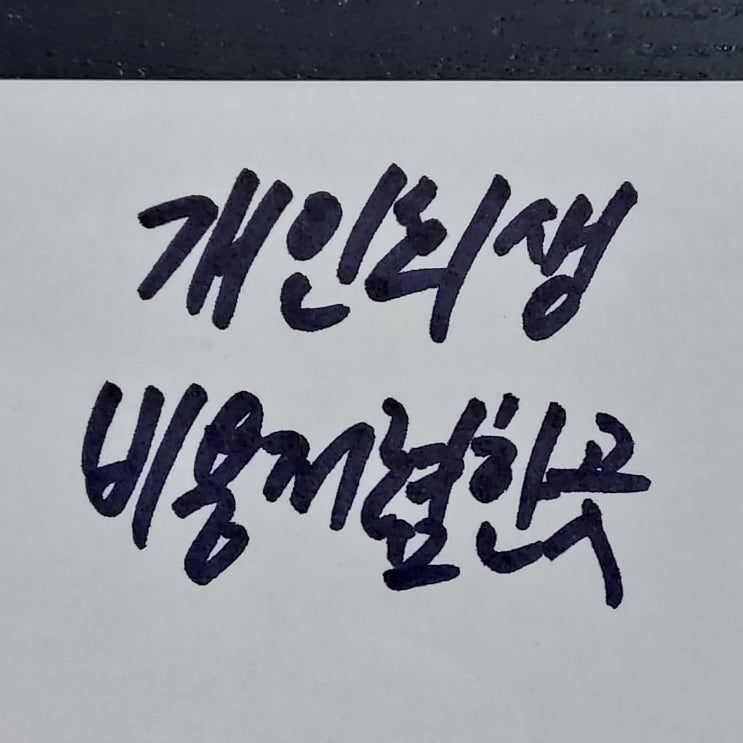 개인회생
비용저렴한곳